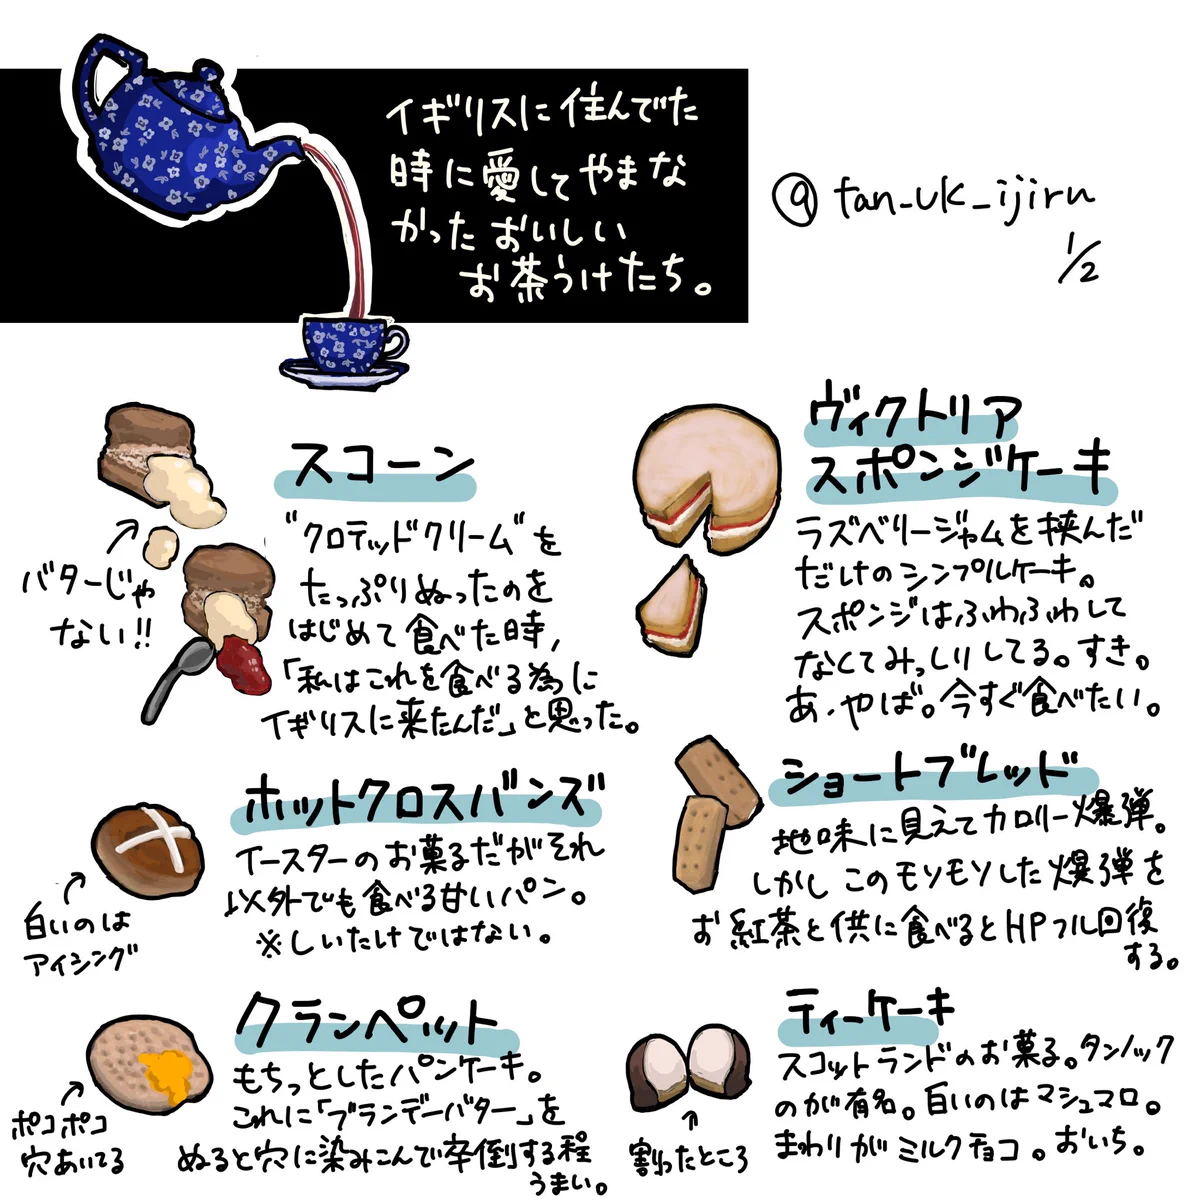 イギリスに住んでた
時に愛してやまな
かったおいしい
お茶うけたち。
@tan_uk_ijiru
1/2
スコーン
"クロテッドクリーム"を
たっぷりぬったのを
はじめて食べた時、
「私はこれを食べる為に
イギリスに来たんだ」と思った。
バターじゃ
ない!!
ヴィクトリア
スポンジケーキ
ラズベリージャムを挟んだ
だけのシンプルケーキ。
スポンジはふわふわして
なくてみっしりしてる。すき。
あ、やば。今すぐ食べたい。
ホットクロスバンズ
イースターのお菓子だがそれ
以外でも食べる甘いパン。
※しいたけではない。
白いのは
アイシング
ショートブレッド
地味に見えてカロリー爆弾。
しかしこのモソモソした爆弾を
お紅茶と供に食べるとHPフル回復
する。
クランペット
もちっとしたパンケーキ。
これに「ブランデーバター」を
ぬると穴に染みこんで卒倒する程
うまい。
ポコポコ
穴あいてる
ティーケーキ
スコットランドのお菓子。タンノック
のが有名。白いのはマシュマロ。
まわりがミルクチョコ。おいち。
割ったところ